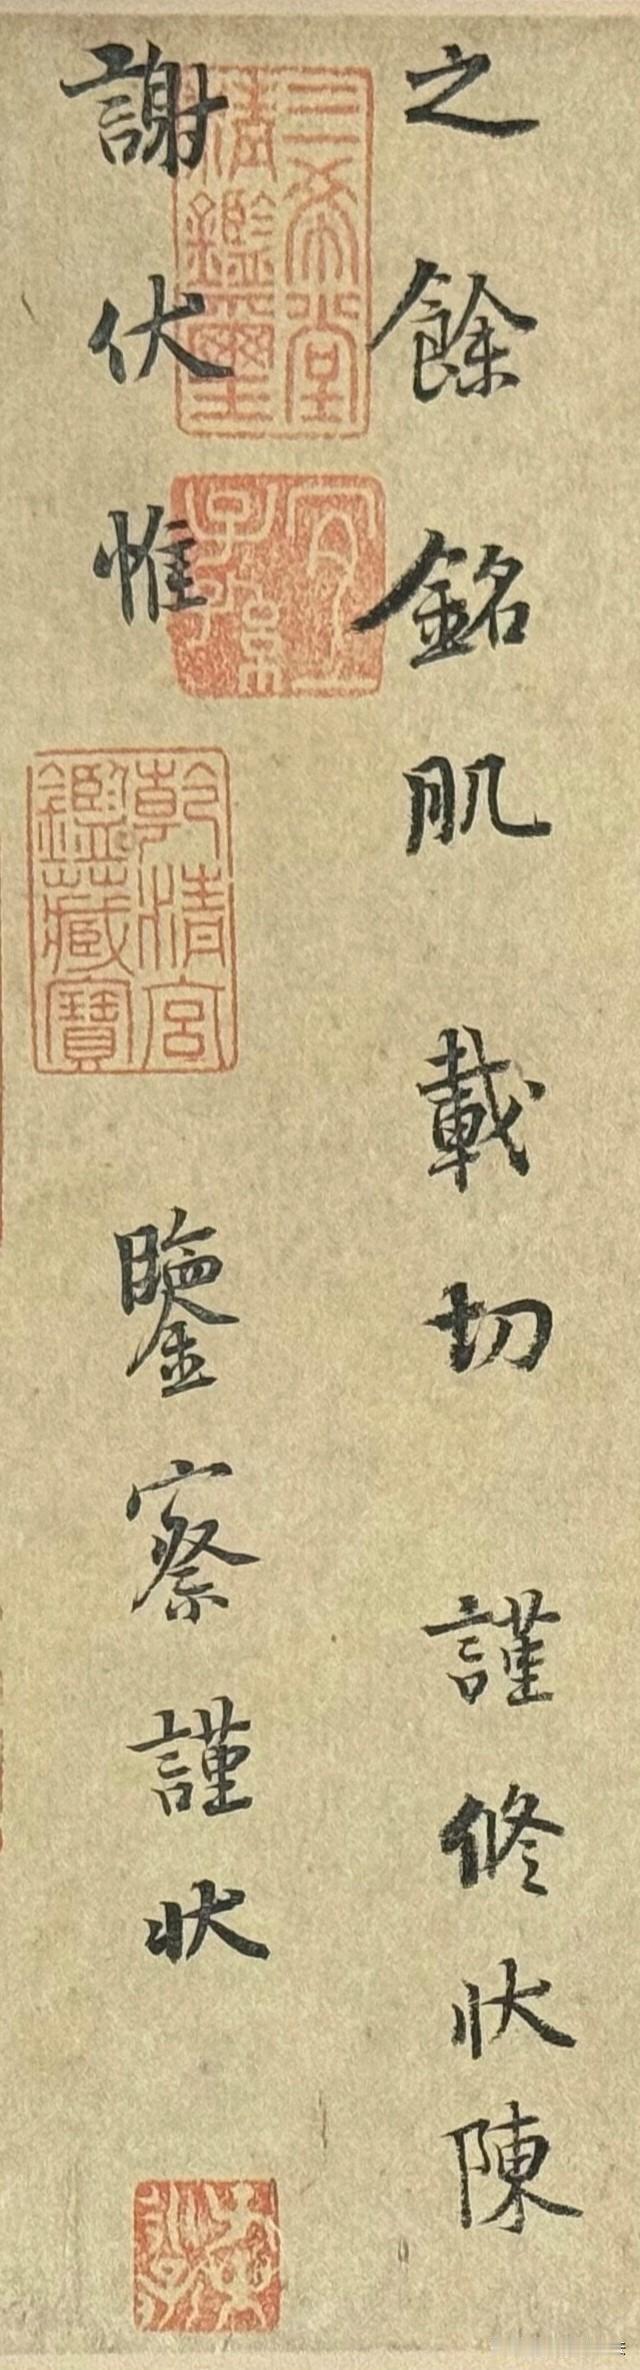 之餘銘肌載切謹修狀陳
謝伏惟
鑒察謹狀
三希堂
精鑑璽
宜子孫
乾清宮
鑑藏寶